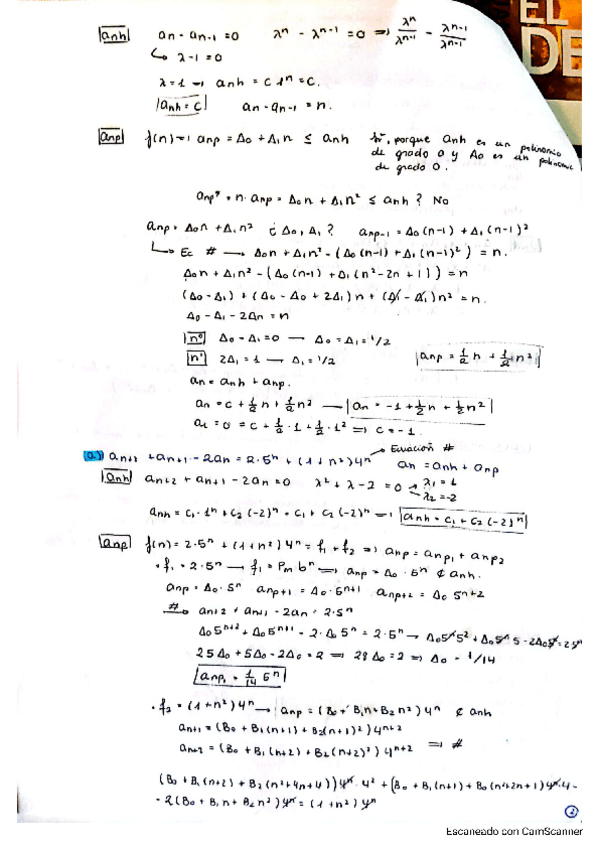 EL
DE
anh an - an-1 = 0 λⁿ - λⁿ⁻¹ = 0 ⇒ λⁿ/λⁿ⁻¹ - λⁿ⁻¹/λⁿ⁻¹
↳ λ-1 = 0
λ = 1 → anh = c 1ⁿ = c.
anh = c an - an-1 = n.
anp f(n) → anp = A₀ + A₁n ≤ anh porque anh es un polinomio
de grado 0 y A₀ es un polinomio
de grado 0.
anp* = n · anp = A₀n + A₁n² ≤ anh? No
anp = A₀n + A₁n² ¿A₀, A₁? anp-1 = A₀(n-1) + A₁(n-1)²
↳ Ec # → A₀n + A₁n² - (A₀(n-1) + A₁(n-1)²) = n.
A₀n + A₁n² - (A₀(n-1) + A₁(n²-2n+1)) = n
(A₀-A₁) + (A₀-A₀+2A₁)n + (A₁-A₁)n² = n.
A₀ - A₁ - 2A₁n = n
n⁰ A₀ - A₁ = 0 → A₀ = A₁ = 1/2
n¹ 2A₁ = 1 → A₁ = 1/2 anp = 1/2 n + 1/2 n²
an = anh + anp.
an = c + 1/2 n + 1/2 n² → an = -1 + 1/2 n + 1/2 n²
a₁ = 0 = c + 1/2 · 1 + 1/2 · 1² ⇒ c = -1.
a) an+2 + an+1 - 2an = 2·5ⁿ + (1+n²)4ⁿ → Ecuación #
an = anh + anp
anh an+2 + an+1 - 2an = 0 λ² + λ - 2 = 0 λ₁ = 1
λ₂ = -2
anh = c₁·1ⁿ + c₂(-2)ⁿ = c₁ + c₂(-2)ⁿ → anh = c₁ + c₂(-2)ⁿ
anp f(n) = 2·5ⁿ + (1+n²)4ⁿ = f₁ + f₂ ⇒ anp = anp₁ + anp₂
· f₁ = 2·5ⁿ → f₁ = Pm bⁿ ⇒ anp = A₀·5ⁿ ∉ anh.
anp = A₀·5ⁿ anp+1 = A₀·5ⁿ⁺¹ anp+2 = A₀ 5ⁿ⁺²
# → an+2 + an+1 - 2an = 2·5ⁿ
A₀5ⁿ⁺² + A₀5ⁿ⁺¹ - 2·A₀5ⁿ = 2·5ⁿ → A₀5ⁿ5² + A₀5ⁿ5 - 2A₀5ⁿ = 2·5ⁿ
25A₀ + 5A₀ - 2A₀ = 2 ⇒ 28A₀ = 2 ⇒ A₀ = 1/14
anp₁ = 1/14 5ⁿ
· f₂ = (1+n²)4ⁿ → anp = (B₀ + B₁n + B₂n²)4ⁿ ∉ anh
an+1 = (B₀ + B₁(n+1) + B₂(n+1)²)4ⁿ⁺²
an+2 = (B₀ + B₁(n+2) + B₂(n+2)²)4ⁿ⁺² ⇒ #
(B₀ + B₁(n+2) + B₂(n²+4n+4))4ⁿ·4² + (B₀ + B₁(n+1) + B₀(n²+2n+1))4ⁿ·4 -
- 2(B₀ + B₁n + B₂n²)4ⁿ = (1+n²)4ⁿ
2
Escaneado con CamScanner